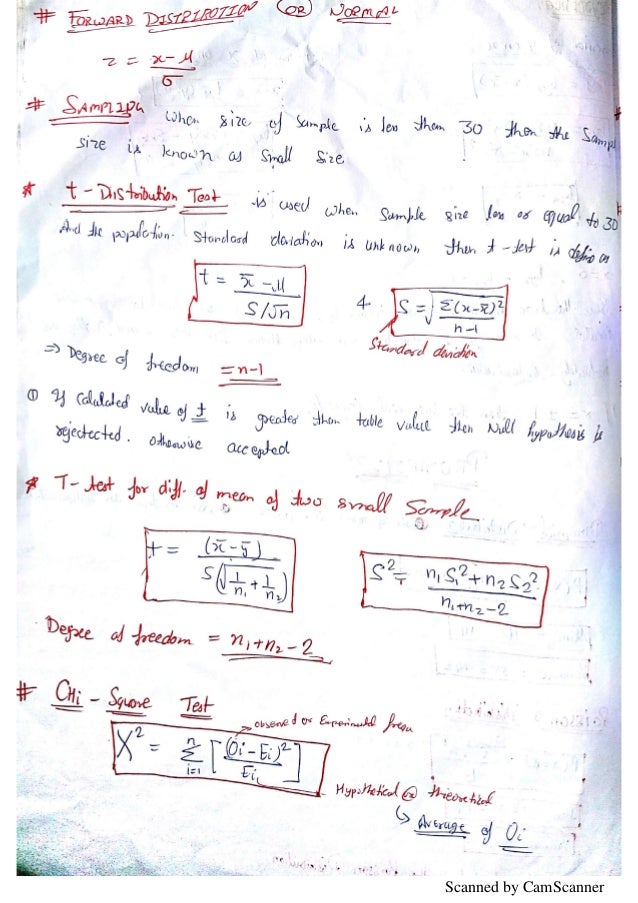 # FORWARD DISTRIBUTION (OR) NORMAL
z = x-μ / σ
# SAMPLING When size of sample is less than 30 then the Sampl
size is known as Small Size
* t-Distribution Test is used when Sample size less or equal to 30
And the population Standard deviation is unknown then t-test is define as
t = x̄ - μ / S/√n & S = √Σ(x-x̄)² / n-1
Standard deviation
⇒ Degree of freedom = n-1
① If Calculated value of t is greater than table value then Null hypothesis is
rejectected. otherwise accepted
* T-test for diff. of mean of two small Sample
t = (x̄ - ȳ) / S(√1/n₁ + 1/n₂) S² = n₁S₁² + n₂S₂² / n₁+n₂-2
Degree of freedom = n₁+n₂-2
# CHi-Square Test
observed or Experimental frequ
X² = Σ i=1 n [(Oi - Ei)² / Ei]
Hypothetical or theoretical
↳ Average of Oi
Scanned by CamScanner